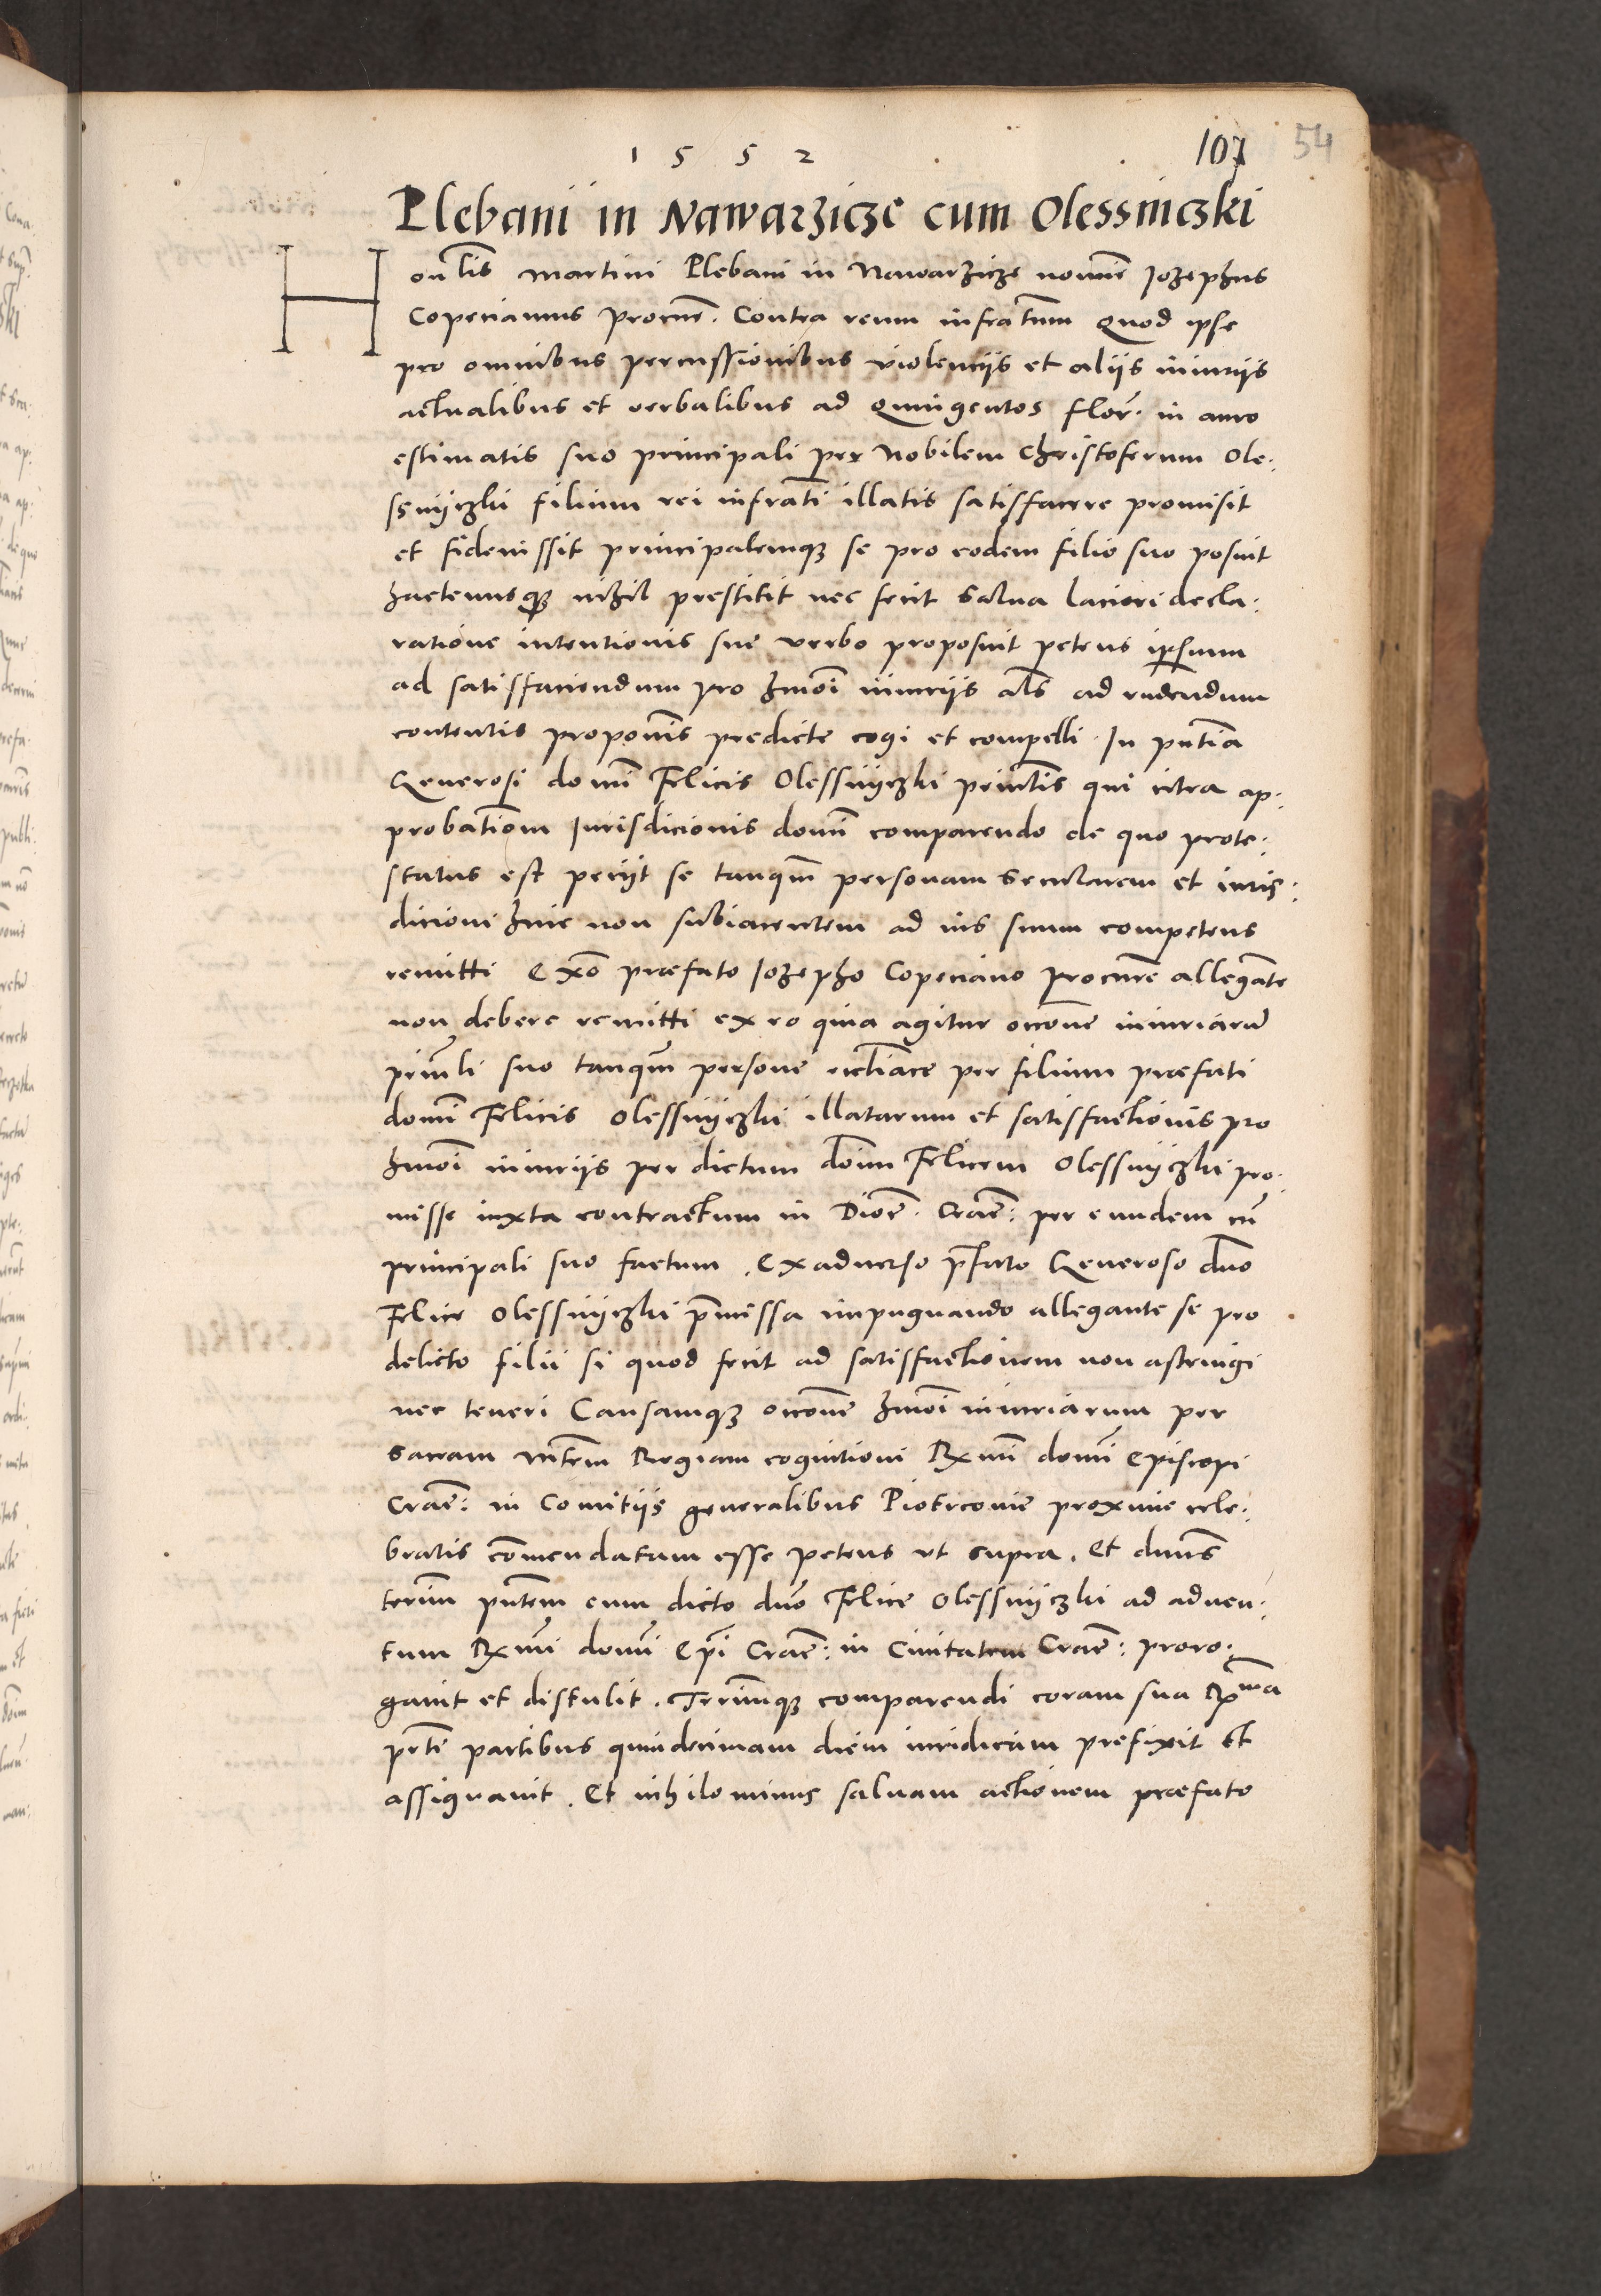 1 5 5 2
107 54
Plebani in Nawarzicze cum Olessniczki
Honlis martini Plebani in Nawarzicze nomine Iozephus
Copecianus Procnre. Contra reum infratnm Quod ipse
pro omnibus percussionibus violenciis et aliis iniuriis
actualibus et verbalibus ad Quingentos flor. in auro
estimatis suo principali per Nobilem Christoferum Ole:
ssnyczki filium rei infrati illatis satisfacere promisit
et fideiussit principalemq se pro eodem filio suo posuit
hactenusq nihil prestitit nec fecit salua laciori decla:
ratione intentionis sue verbo proposuit petens ipsum
ad satisfaciendum pro hmoi iniuriis als ad rndendum
contentis propotnis predicte cogi et compelli. In pntia
Generosi domi Felicis Olessnyczki princtlis qui citra ap:
probationem Iurisdicionis domi comparendo de quo prote:
status est peciit se tanqm personam secularem et iuris:
dicioni huic non subiacentem ad ius suum competens
remitti Exo praefato Iozepho Copeciano Procnre allegante
non debere remitti ex eo quia agitur occone iniuriarum
princli suo tanqm persone ecctiace per filium praefati
domi Felicis Olessnyczki illatarum et satisfactionis pro
hmoi iniuriis per dictum domi Felicem Olessnyczki pro:
misse iuxta contractum in Dioce. Crac: per eundem cu
principali suo factum. Exaduerso pfato Generoso dno
Felice Olessnyczki pmissa impugnando allegante se pro
delicto filii si quod fecit ad satisfactionem non astringi
nec teneri Causamq occone hmoi iniuriarum per
Sacram mtem Regiam cognitioni Rx mi domi Episcopi
Crac: in Comitiis generalibus Piotrconie proxime cele:
bratis comendatam esse petens vt supra. Et dnus
terim pntem cum dicto dno Felice Olessnyczki ad aduen:
tum Rx mi domi Epi Crac: in Ciuitatem Crac: proro:
gauit et distulit. Terimq comparendi coram sua Rx ma
prte partibus quindecimam diem iuridicam prefixit et
assignauit. Et nihilominus saluam actionem praefato